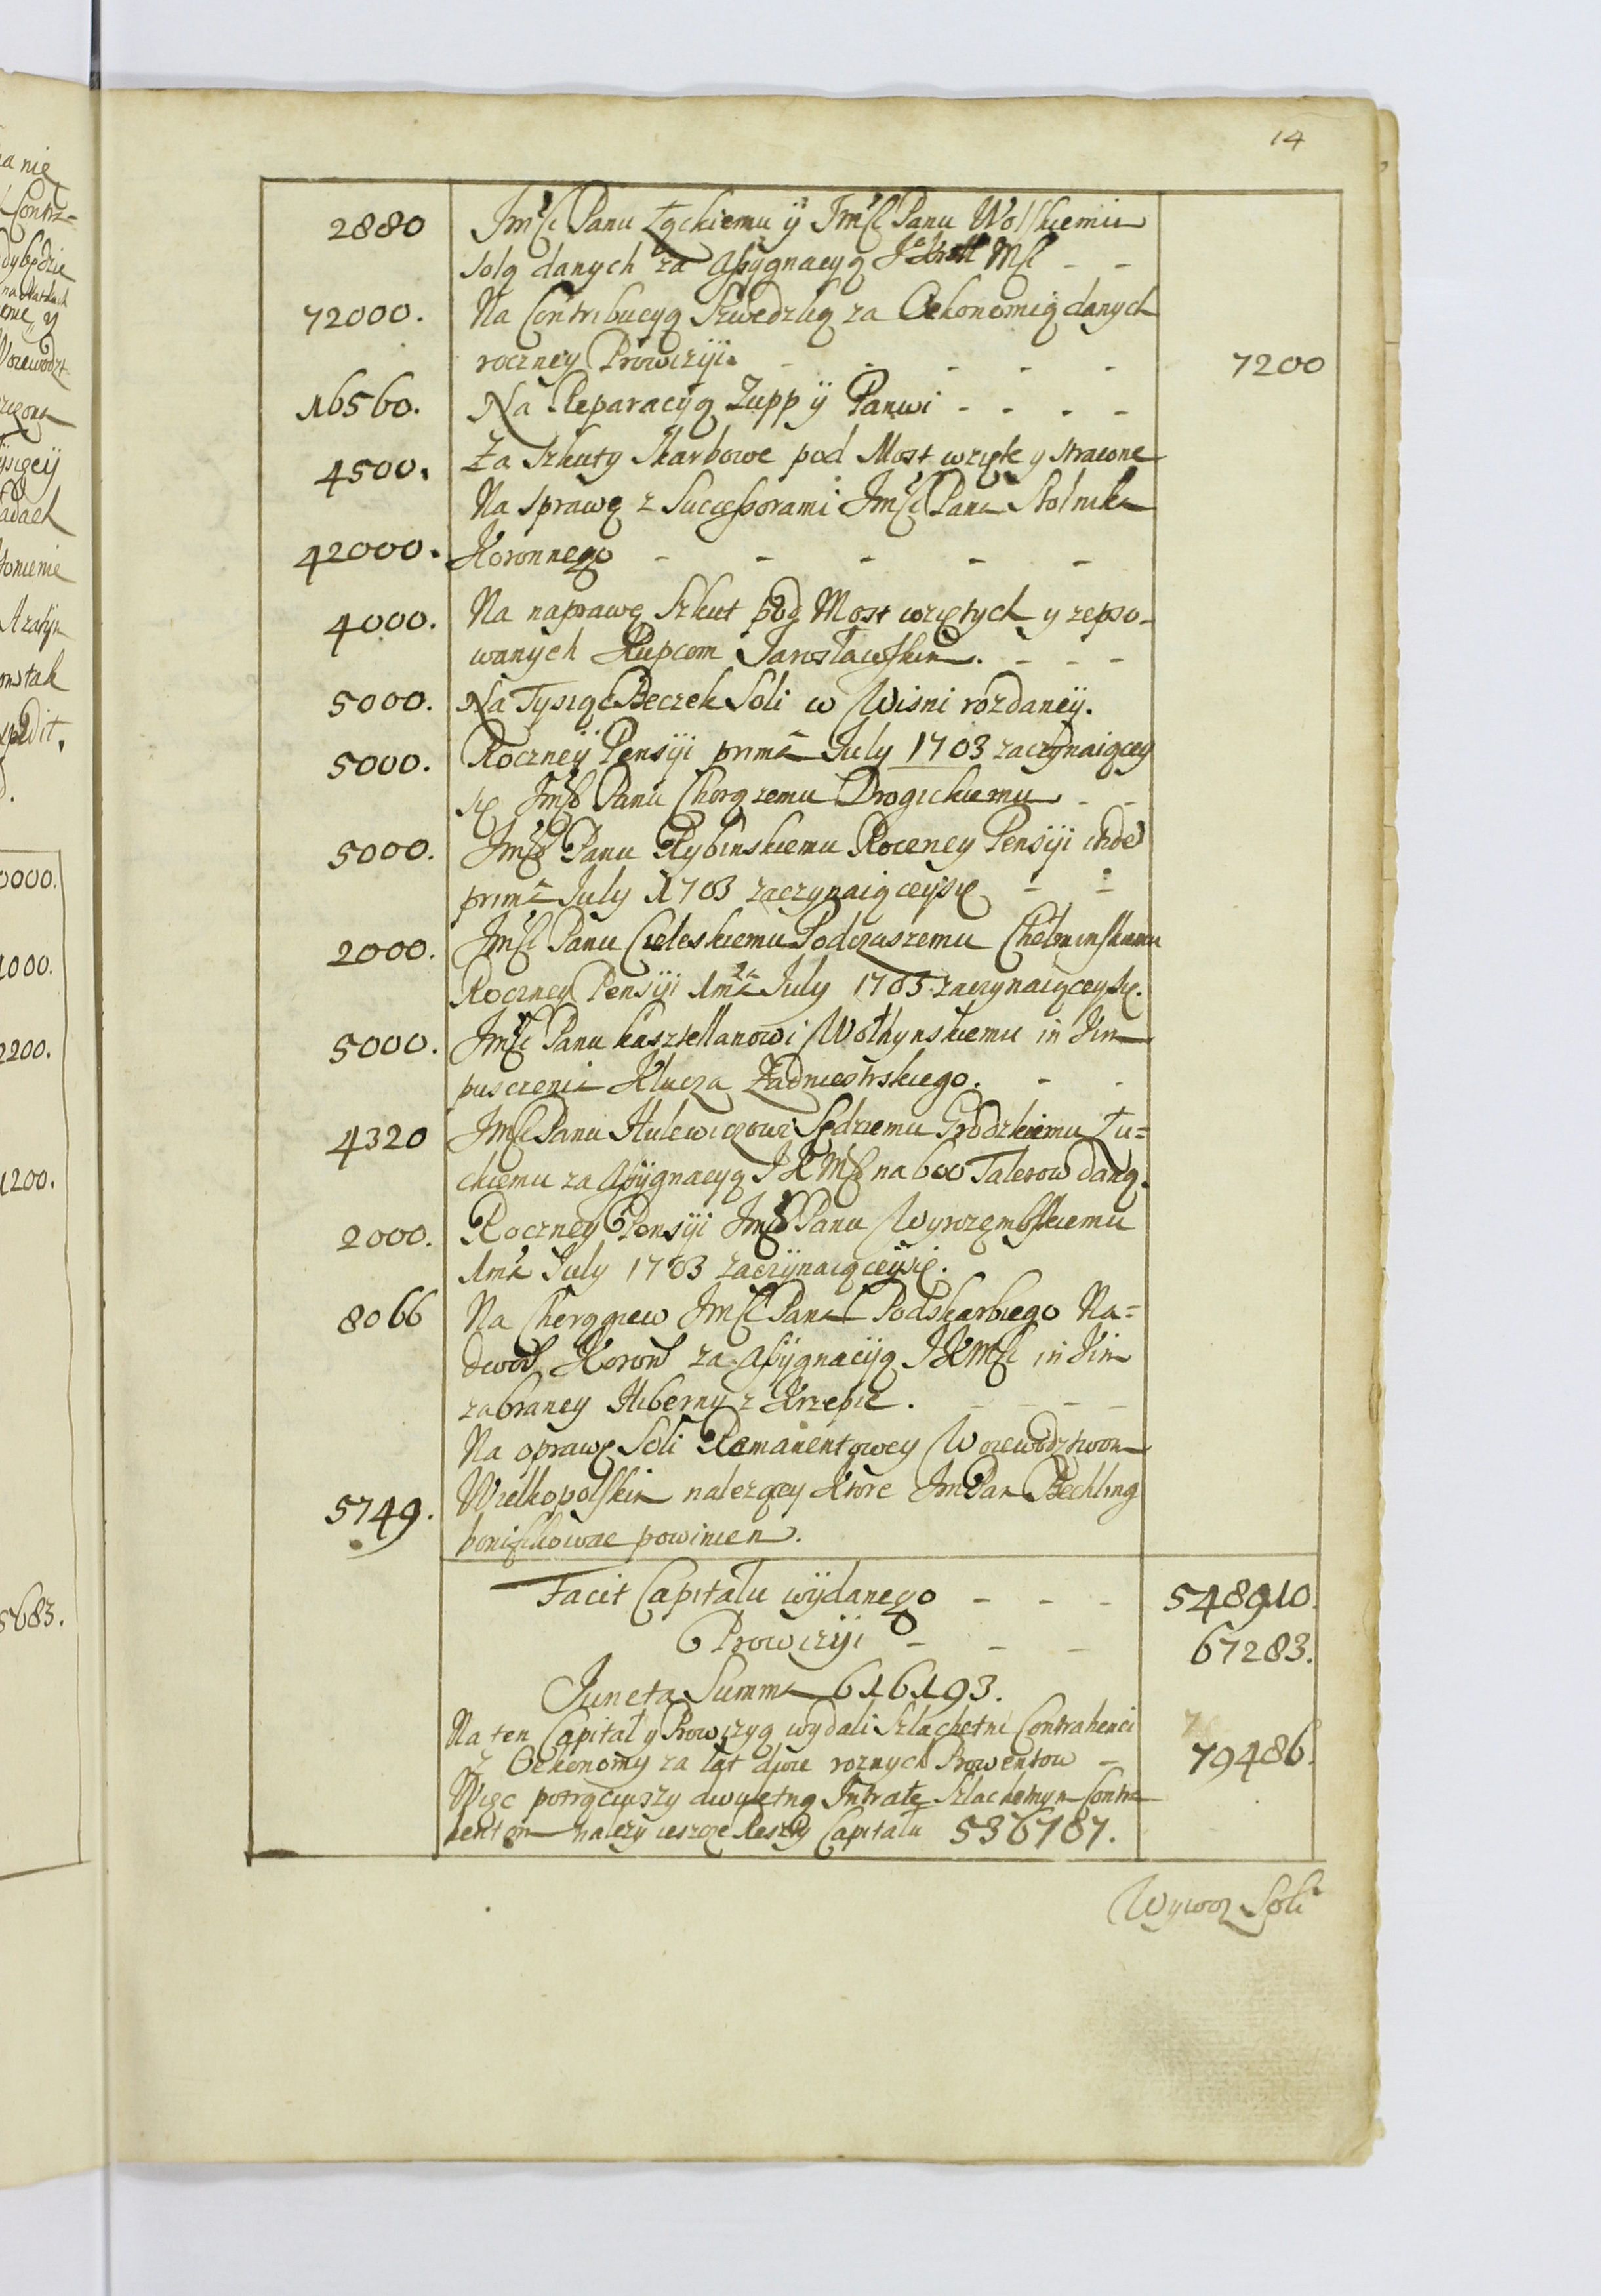 14
2880 Jmsc Panu Łąckiemu ÿ Jmsc Panu Wolskiemu
solą danych za Assygnacyą J Kroll Msc - -
72000. Na Contribucyą Szwedzką za Oekonomią danych
roczney Prowizÿi. - - - - - 7200
16560. Na Reparacyą Zupp ÿ Panwi - - - -
4500. Za Szkuty Skarbowe pod Most wzięte y stracone
Na sprawę z Successorami Jmsc Pana Stolnika
42000. Koronnego - - - - -
4000. Na naprawę Szkut pod Most wziętych y zepso-
wanych Kupcom Jarosławskim. - - -
5000. Na Tysiąc Beczek Soli w Wisni rozdaneÿ.
5000. Roczneÿ Pensÿi prima July 1703 zaczynaiącey
się Jmsc Panu Chorązemu Drogickiemu - -
5000. Jmsc Panu Rybinskiemu Roczney Pensÿi itidem
prima July 1703 zaczynaiąceysię - -
2000. Jmsc Panu Cieleskiemu Podczaszemu Chełminskiemu
Roczney Pensÿi 1ma July 1705 zaczynaiąceysię.
5000. Jmsc Panu Kasztellanowi Wołhynskiemu in Vim
puscizenia Klucza Zadniestrskiego. - -
4320 Jmsc Panu Hulewiczowi Sędziemu Grodzkiemu Łu=
ckiemu za Assÿgnacyą J K Msc na 600 Talerow daną.
2000. Roczney Pensÿi Jmsc Panu Wyrozembskiemu
1ma July 1703 zaczÿnaiąceÿsię.
8066 Na Chorągiew Jmsc Pana Podskarbiego Na=
dwor Koron za Assÿgnacÿą J K Msc in Vim
zabraney Hiberny z Krzepic. - - - -
Na oprawę Soli Remanentowey Woiewodztwom
Wielkopolskim nalezącey ktore Jm Pan Bechling
5749. bonifikowac powinien.
Facit Capitału wÿdanego - - - 548910.
Prowizÿi - - - 67283.
Juncta Summa 616193.
Na ten Capitał y Prowizyą wydali Szlachetni Contrahenci
z Oekonomy za lat dwie roznych Prowentow - 79486.
Więc potrąciwszy dwuletną Intratę Szlachetnym Contra
hentom nalezy ieszcze Reszty Capitału 536707.
Wywoz Soli